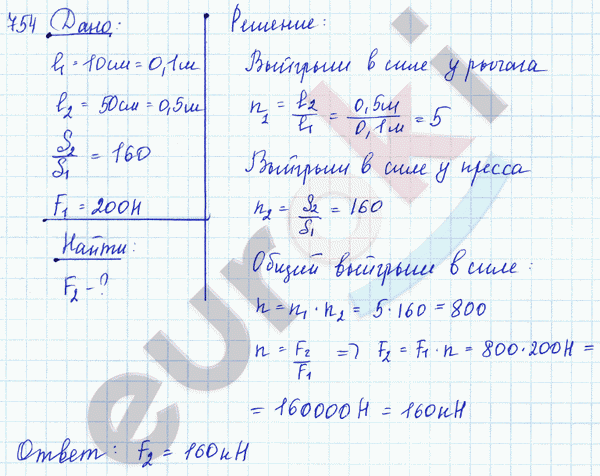 754 Дано:
l₁ = 10см = 0,1м
l₂ = 50см = 0,5м
S₂/S₁ = 160
F₁ = 200Н
Найти:
F₂ - ?
Решение:
Выйгрыш в силе у рычага
n₁ = l₂/l₁ = 0,5м/0,1м = 5
Выйгрыш в силе у пресса
n₂ = S₂/S₁ = 160
Общий выйгрыш в силе:
n = n₁ · n₂ = 5 · 160 = 800
n = F₂/F₁ => F₂ = F₁ · n = 800 · 200Н =
= 160000Н = 160кН
Ответ: F₂ = 160кН
euroki